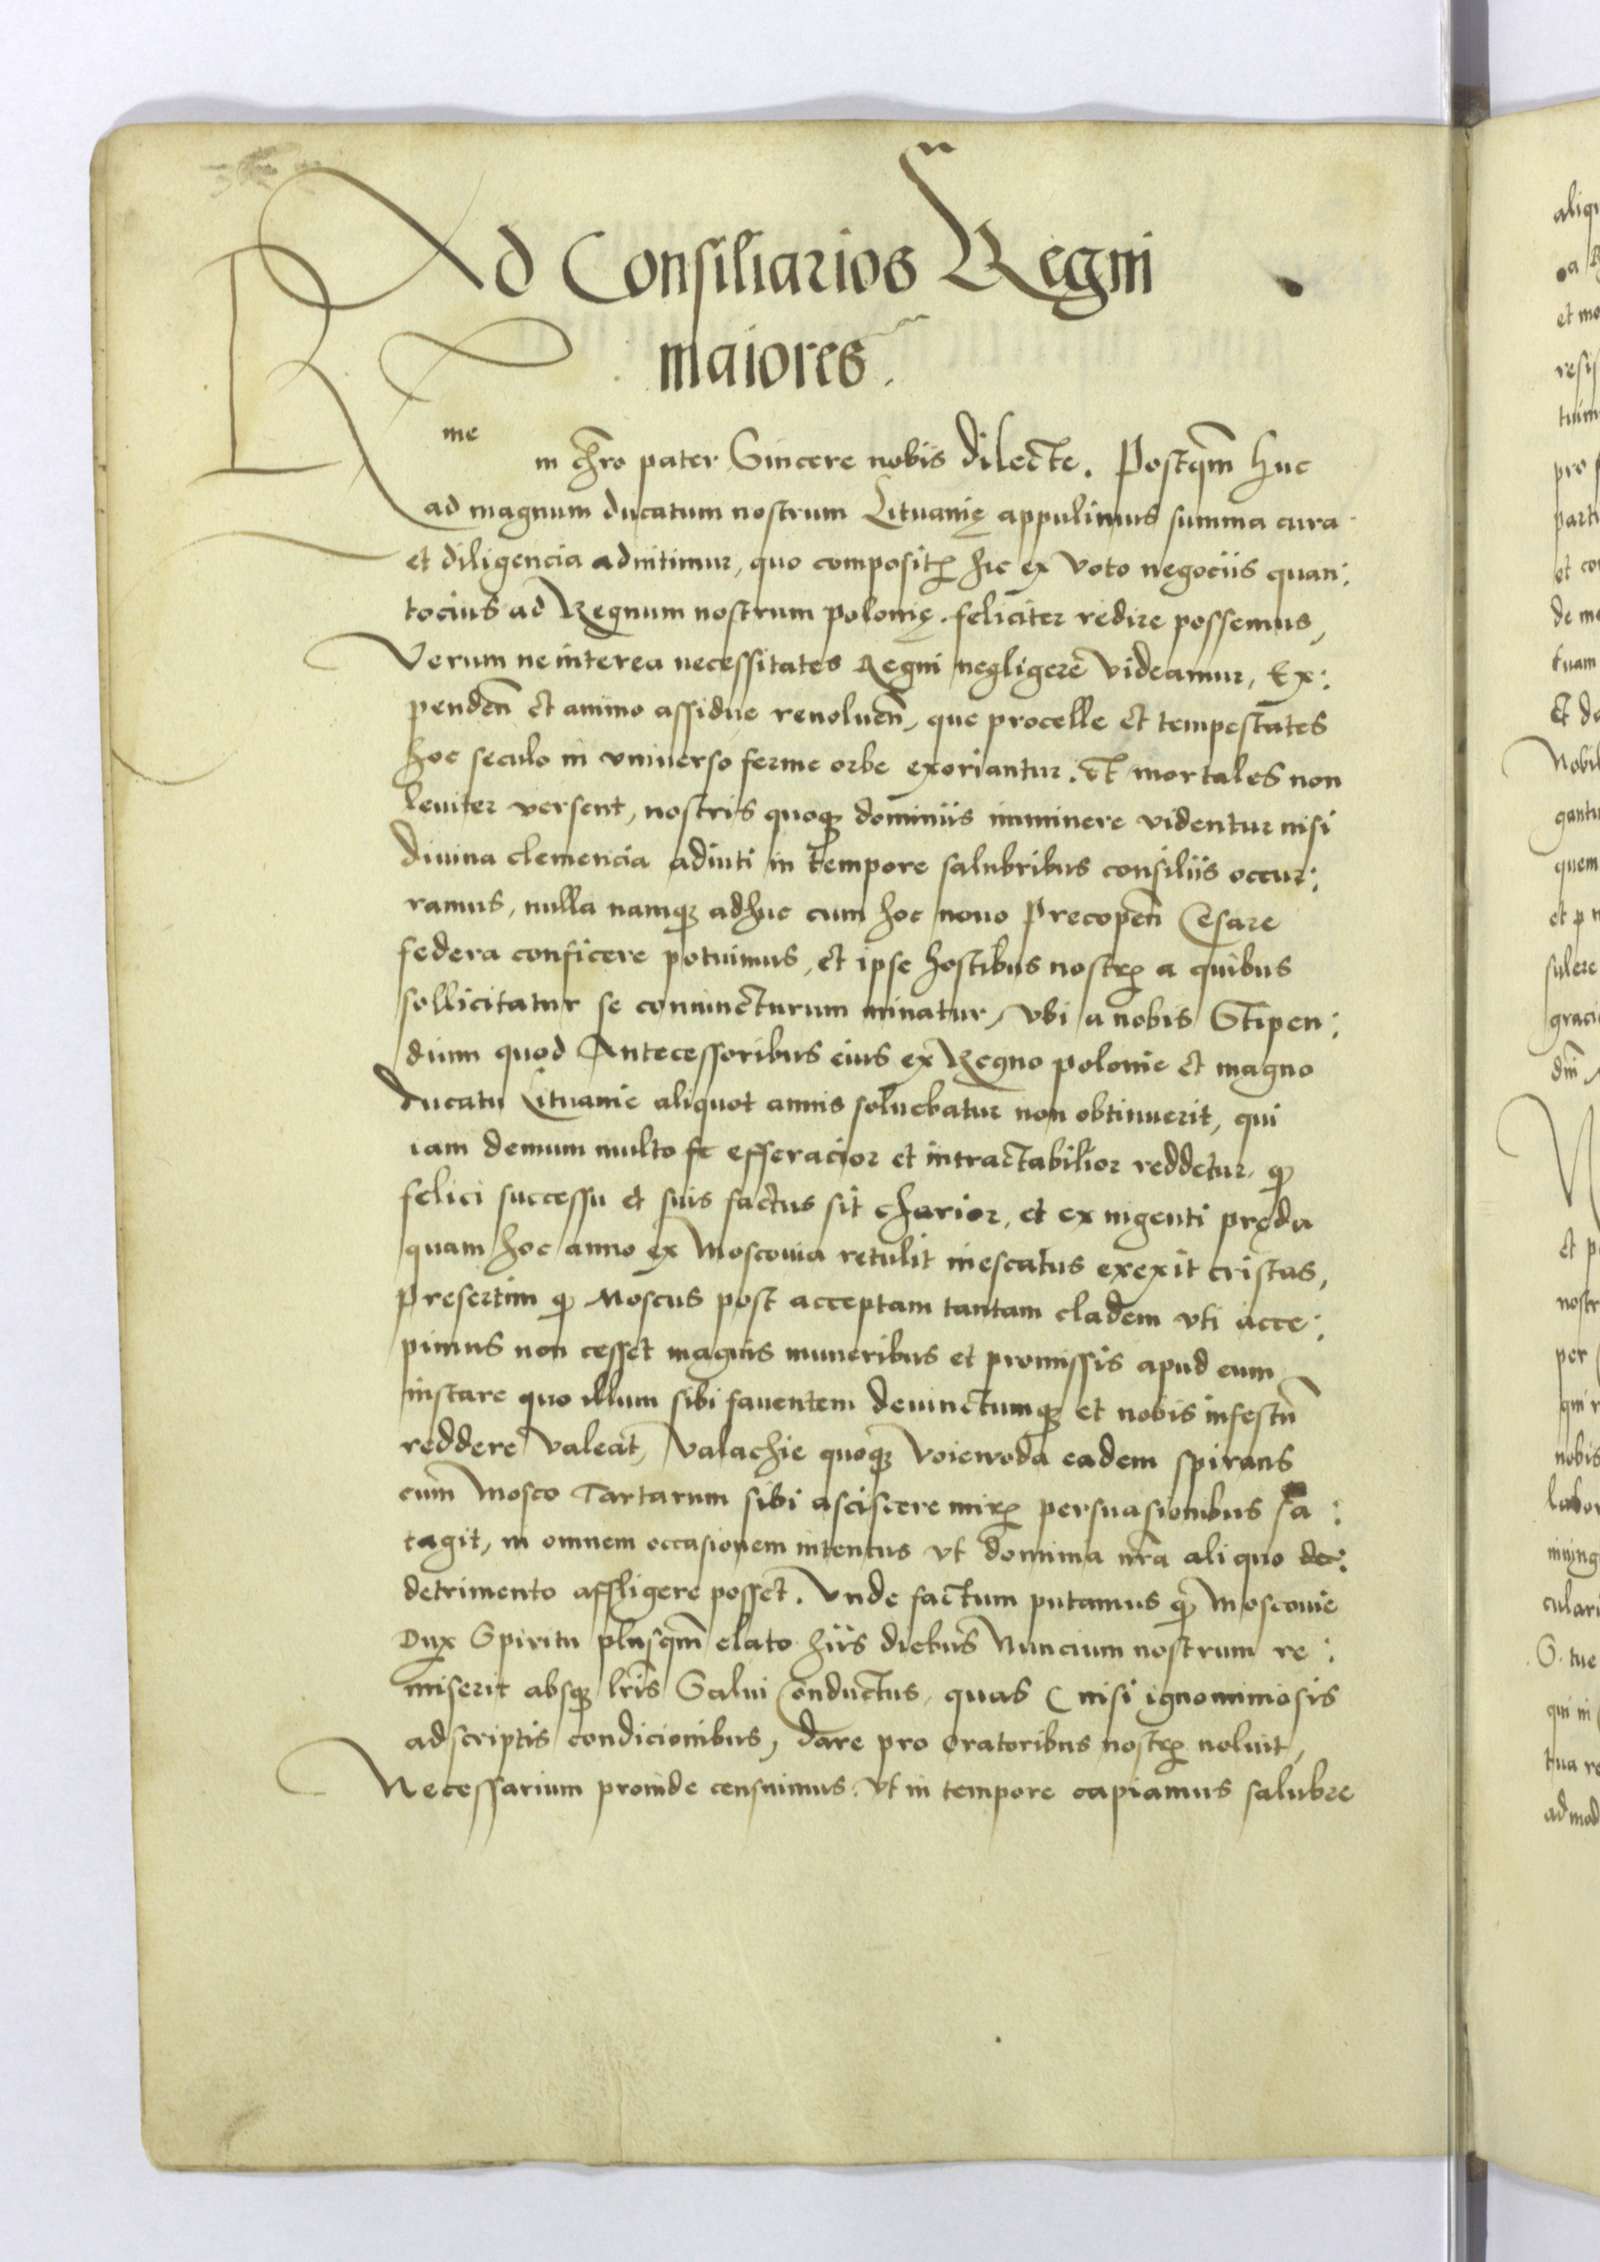 Ad Consiliarios Regni
maiores.
R me in chro pater Sincere nobis dilecte. Postqm huc
ad magnum ducatum nostrum Lituanię appulimus summa cura
et diligencia adnitimur, quo composit hic ex voto negociis quan:
tocius ad Regnum nostrum polonię feliciter redire possemus,
Verum ne interea necessitates Regni negligere videamur, Ex:
penden et animo assidue revoluen, que procelle et tempestates
hoc seculo in vniuerso ferme orbe exoriantur. Et mortales non
leuiter versent, nostris quoq dominiis imminere videntur nisi
diuina clemencia adiuti in tempore salubribus consiliis occur:
ramus, nulla namq adhuc cum hoc nouo Precopen Cesare
federa conficere potuimus, et ipse hostibus nostr a quibus
sollicitatur se coniuncturum minatur, vbi a nobis Stipen:
dium quod Antecessoribus eius ex Regno polonie et magno
ducatu Lituanie aliquot annis soluebatur non obtinuerit, qui
iam demum multo efferacior et intractabilior reddetur, q
felici successu et suis factus sit charior, et ex ingenti pręda
quam hoc anno ex Moscouia retulit inescatus erexit cristas,
Presertim q Moscus post acceptam tantam cladem vti acce:
pimus non cesset magnis muneribus et promissis apud eum
instare quo illum sibi fauentem deuinctumq et nobis infestu
reddere valeat, Valachie quoq Voiewoda eadem spirans
cum Mosco Tartarum sibi asciscere mir persuasionibus sa:
tagit, in omnem occasionem intentus vt dominia nra aliquo de:
detrimento affligere posset. Vnde factum putamus q Moscouie
Dux Spiritu plusqm elato hiis diebus Nuncium nostrum re:
miserit absq lris Salui Conductus, quas ( nisi ignominiosis
adscriptis condicionibus, dare pro Oratoribus nostr noluit,
Necessarium proinde censuimus. Vt in tempore capiamus salubre